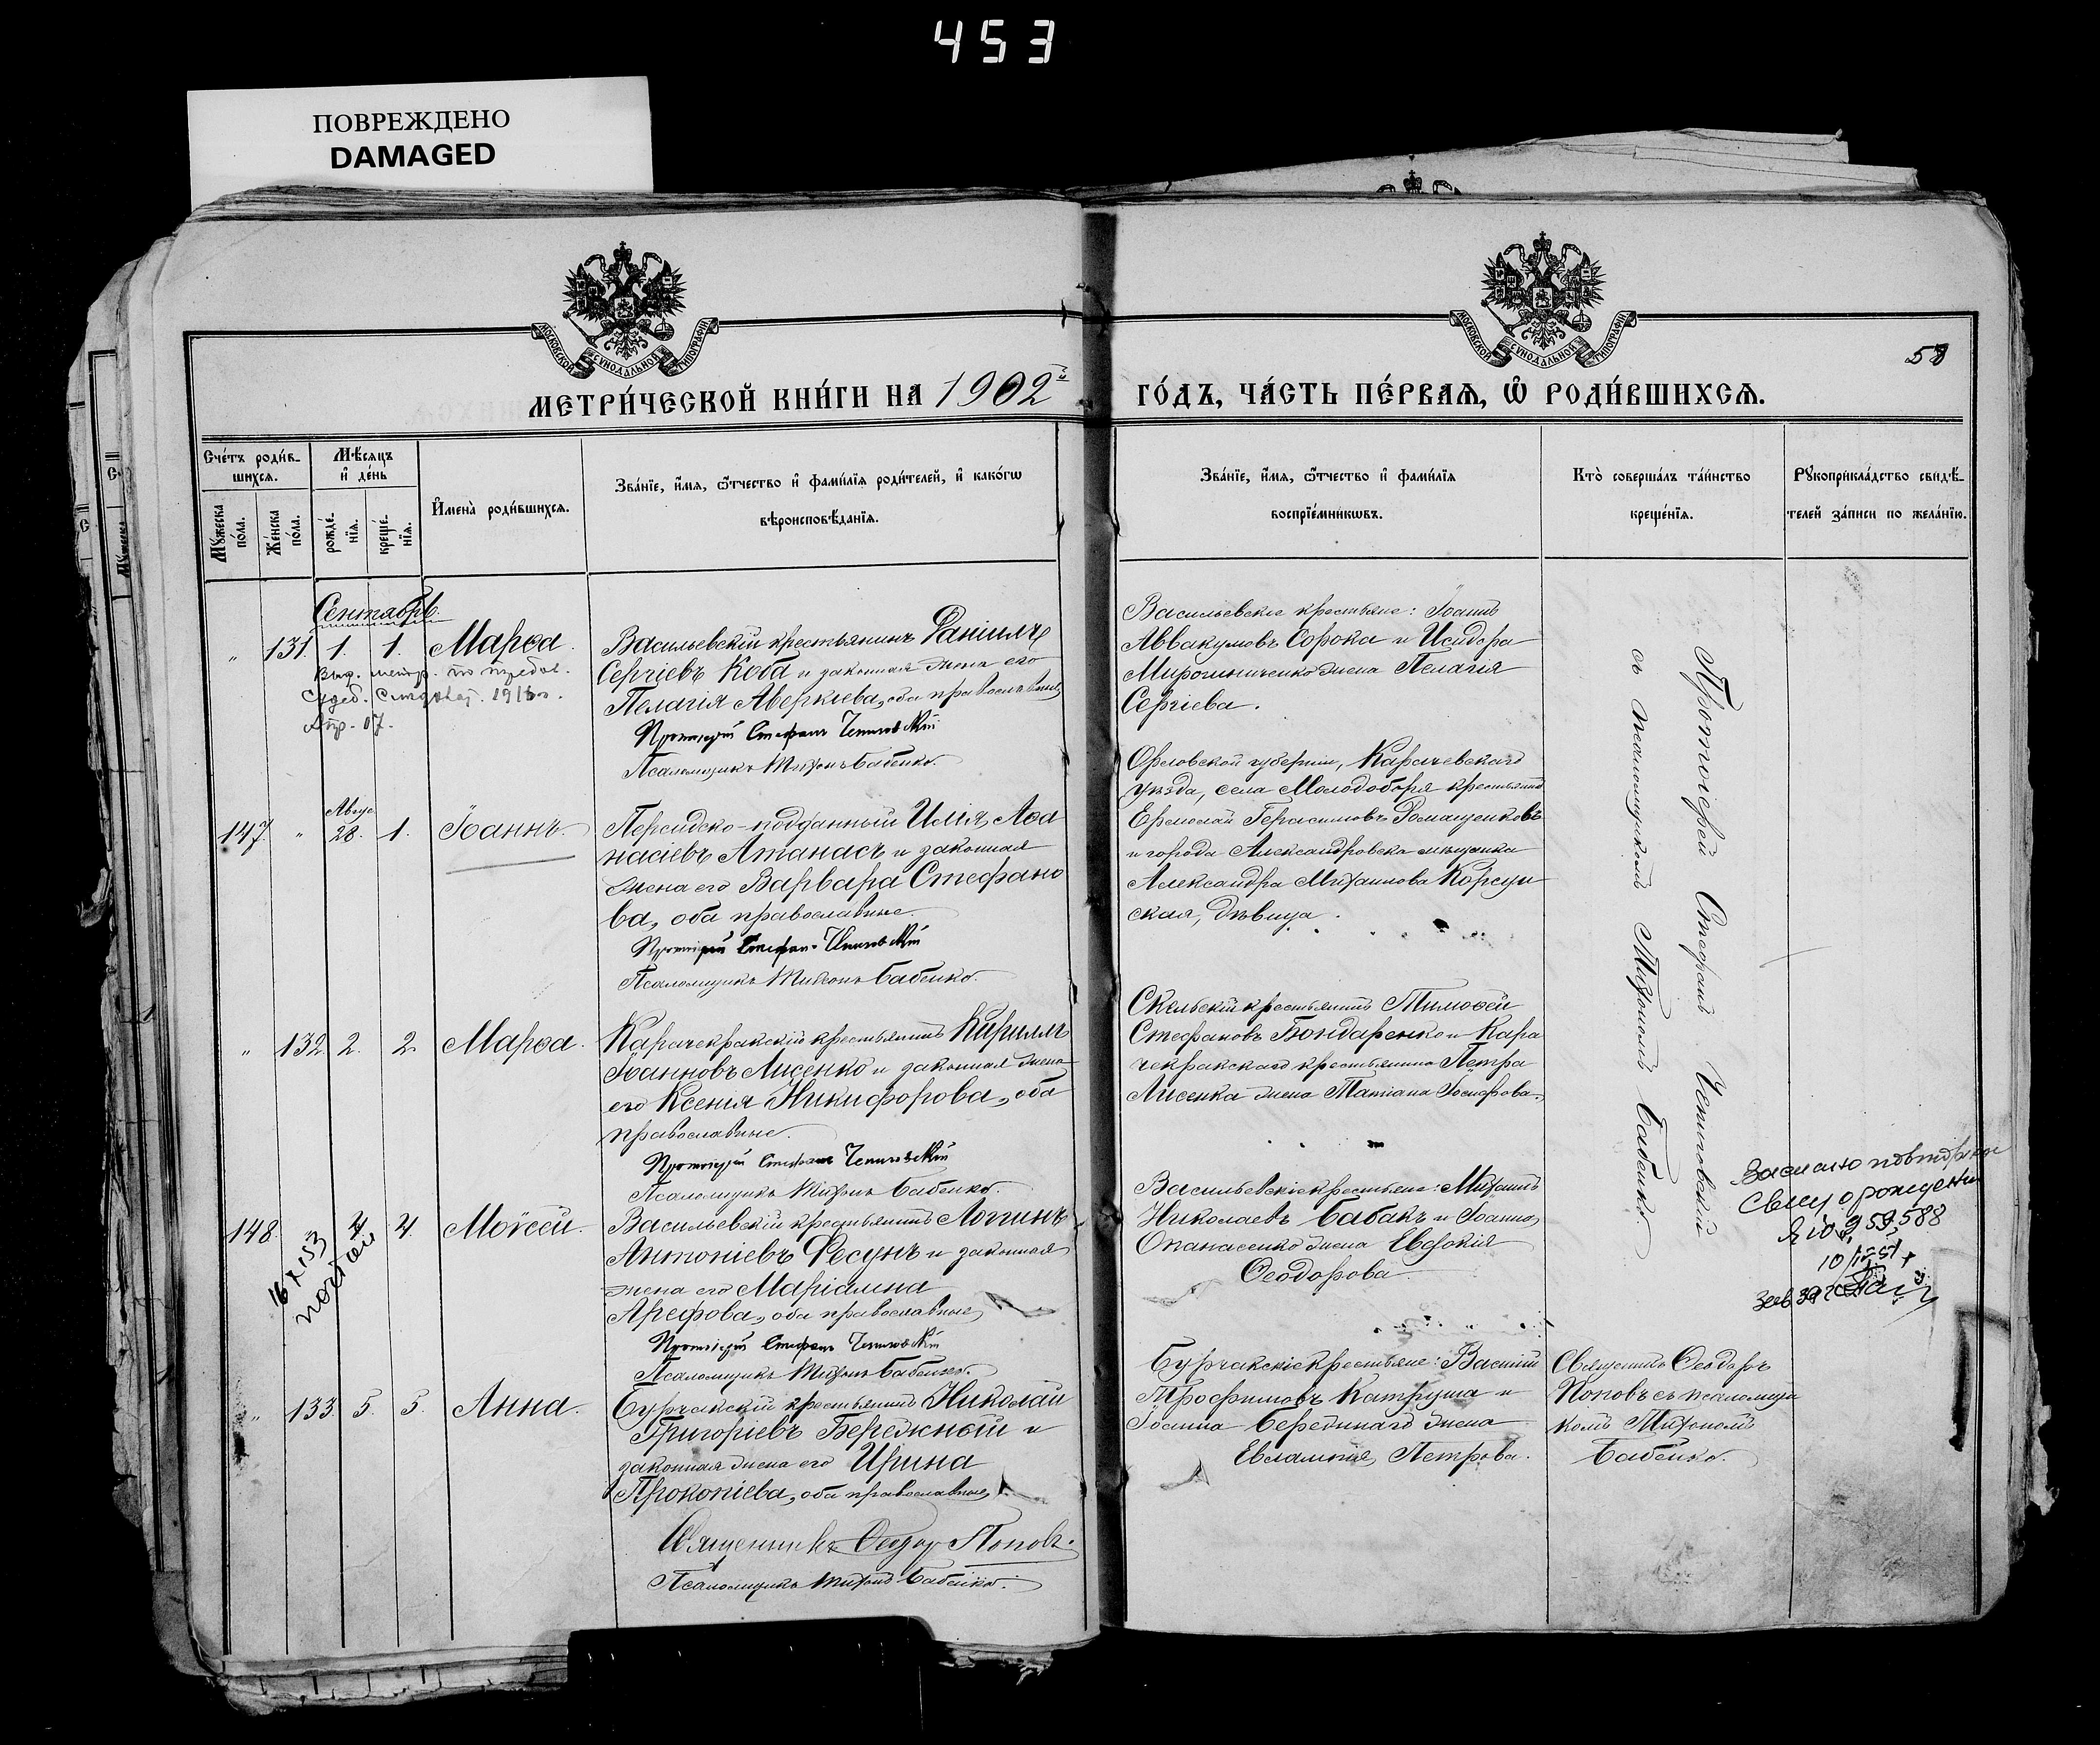 453
ПОВРЕЖДЕНО
DAMAGED
МОСКОВСКОЙ СѴНОДАЛЬНОЙ ТИПОГРАФІИ
МОСКОВСКОЙ СѴНОДАЛЬНОЙ ТИПОГРАФІИ
58
МЕТРИ́ЧЕСКОЙ КНИ́ГИ НА 1902й
ГО́ДЪ, ЧА́СТЬ ПЕ́РВАѦ, Ѽ РОДИ́ВШИХСѦ.
Сче́тъ роди́в-
шихся.
Мѣ́сяцъ
и҆ де́нь
Мꙋ́жеска
по́ла.
Же́нска
по́ла.
рожде́-
нїя.
креще́-
нїя.
И҆мена̀ роди́вшихся.
Зва́нїе, и҆́мя, ѻ҆́тчество и҆ фами́лїя роди́телей, и҆ како́гѡ
вѣроисповѣ́данїя.
Зва́нїе, и҆́мя, ѻ҆́тчество и҆ фами́лїя
воспрїе́мникѡвъ.
Кто̀ соверша́лъ та́инство
креще́нїя.
Рꙋкоприкла́дство свидѣ́-
телей за́писи по жела́нїю.
Сентябрь.
" 131. 1. 1. Марѳа.
Васильевскій крестьянинъ Даніилъ
Сергіевъ Коба и законная жена его
Пелагія Аверкіева, оба православные
Протоіерей Стефанъ
Псаломщикъ Тихонъ Бабенко.
Васильевскіе крестьяне: Іоаннъ
Аввакумовъ Сорока и Исидора
Мирошниченко жена Пелагія
Сергіева.
147. " Авгус. 28. 1. Іоаннъ.
Персидско-подданный Илія Аѳа
насіевъ Атанасъ и законная
жена его Варвара Стефано
ва, оба православные.
Протоіерей Стефанъ
Псаломщикъ Тихонъ Бабенко.
Орловской губерніи, Карачевскаго
уѣзда, села Молодоборя крестьянинъ
Ермолай Герасимовъ Ромащенковъ
и города Александровска мѣщанка
Александра Михаилова Корсун
ская, дѣвица.
" 132. 2. 2. Марѳа.
Карачекракскій крестьянинъ Кириллъ
Іоанновъ Лисенко и законная жена
его Ксенія Никифорова, оба
православные.
Протоіерей Стефанъ
Псаломщикъ Тихонъ Бабенко.
Скельскій крестьянинъ Тимоѳей
Стефановъ Бондаренко и Кара
чекракскаго крестьянина Петра
Лисенка жена Татіана Іосифова.
148. " 4. 4. Моѵсей.
16 X 153
Васильевскій крестьянинъ Логгинъ
Антоніевъ Фесунъ и законная
жена его Маріамна
Арефова, оба православные
Протоіерей Стефанъ
Псаломщикъ Тихонъ Бабенко.
Васильевскіе крестьяне: Михаилъ
Николаевъ Бабакъ и Іоанна
Опанасенко жена Евдокія
Ѳеодорова.
Протоіерей Стефанъ
съ псаломщикомъ Тихономъ Бабенко.
повторное
о рождении
" 133. 5. 5. Анна.
Бурчакскій крестьянинъ Николай
Григоріевъ Бережный и
законная жена его Ирина
Прокопіева, оба православные
Священникъ Ѳеодоръ Поповъ.
Псаломщикъ Тихонъ Бабенко.
Бурчакскіе крестьяне: Василій
Трофимовъ Катруша и
Іоанна Бережнаго жена
Евлампія Петрова.
Священникъ Ѳеодоръ
Поповъ съ псаломщи
комъ Тихономъ
Бабенко.